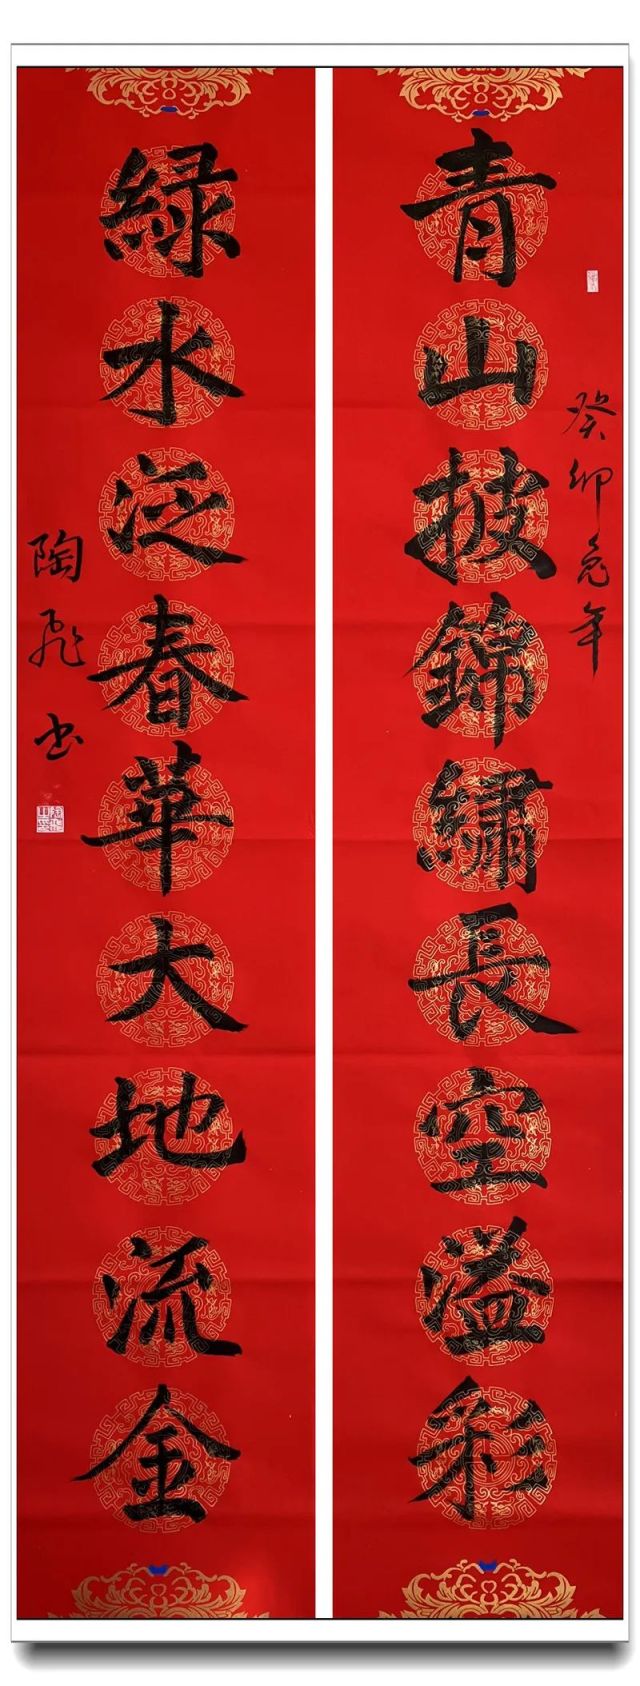 青山披錦繡長空溢彩
癸卯兔年
綠水泛春華大地流金
陶飛书